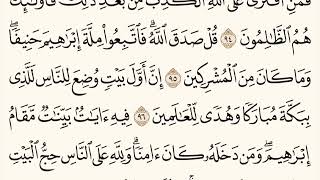 فَمَنِ ٱفْتَرَىٰ عَلَى ٱللَّهِ ٱلْكَذِبَ مِنۢ بَعْدِ ذَٰلِكَ فَأُو۟لَٰٓئِكَ
هُمُ ٱلظَّٰلِمُونَ ٩٤ قُلْ صَدَقَ ٱللَّهُ ۗ فَٱتَّبِعُوا۟ مِلَّةَ إِبْرَٰهِيمَ حَنِيفًا ۖ
وَمَا كَانَ مِنَ ٱلْمُشْرِكِينَ ٩٥ إِنَّ أَوَّلَ بَيْتٍ وُضِعَ لِلنَّاسِ لَلَّذِى
بِبَكَّةَ مُبَارَكًا وَهُدًى لِّلْعَٰلَمِينَ ٩٦ فِيهِ ءَايَٰتٌۢ بَيِّنَٰتٌ مَّقَامُ
إِبْرَٰهِيمَ ۖ وَمَن دَخَلَهُۥ كَانَ ءَامِنًا ۗ وَلِلَّهِ عَلَى ٱلنَّاسِ حِجُّ ٱلْبَيْتِ